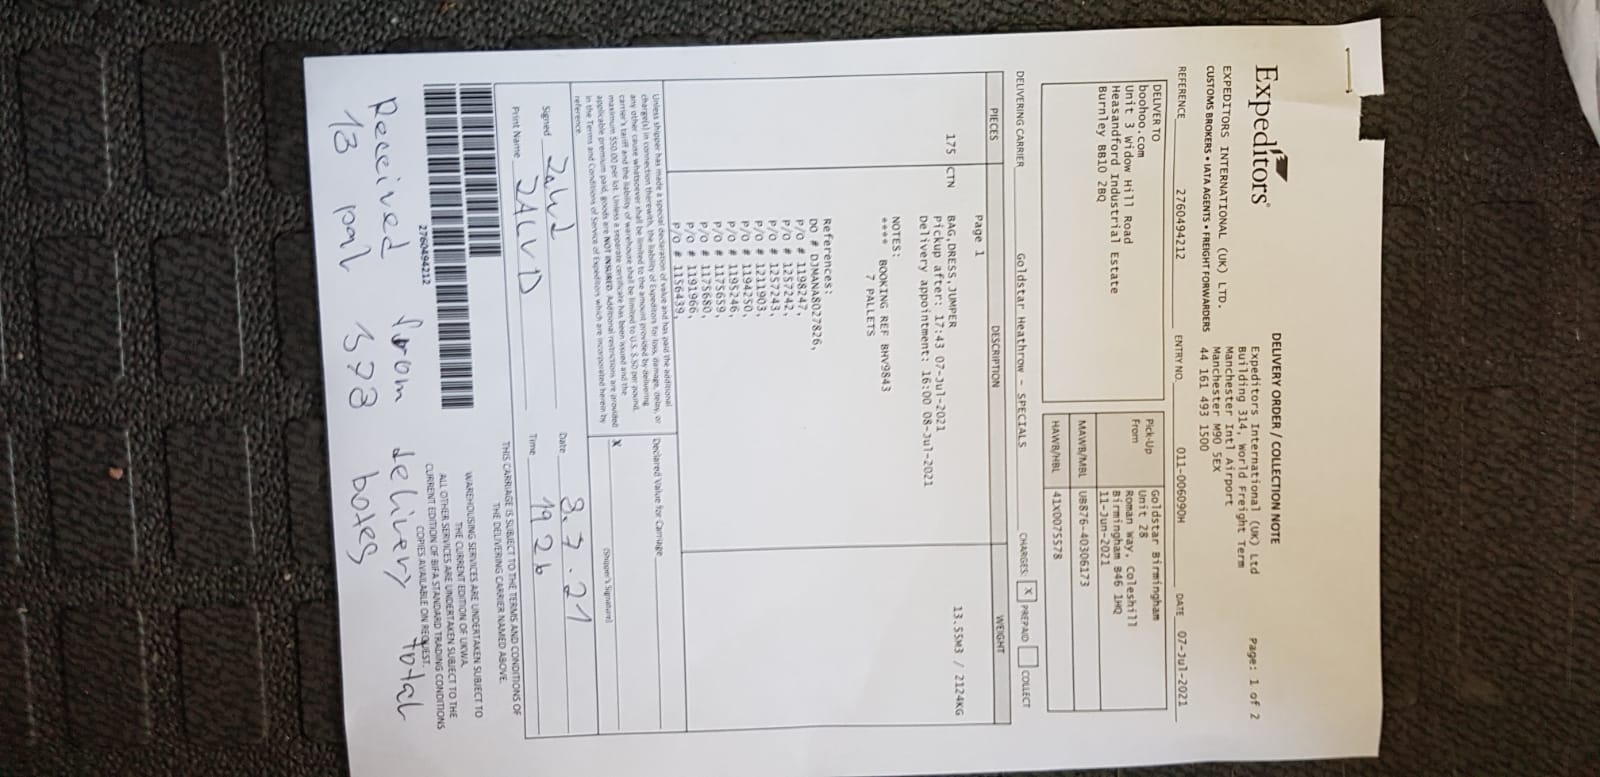 Expeditors®
EXPEDITORS INTERNATIONAL (UK) LTD.
CUSTOMS BROKERS • IATA AGENTS • FREIGHT FORWARDERS
DELIVERY ORDER / COLLECTION NOTE
Page: 1 of 2
Expeditors International (UK) Ltd
Building 314, World Freight Term
Manchester Intl Airport
Manchester M90 5EX
44 161 493 1500
REFERENCE 2760494212 ENTRY NO. 011-006090H DATE 07-Jul-2021
DELIVER TO
boohoo.com
Unit 3 Widow Hill Road
Heasandford Industrial Estate
Burnley BB10 2BQ
Pick-Up From
Goldstar Birmingham
Unit 2B
Roman Way, Coleshill
Birmingham B46 1HQ
11-Jun-2021
MAWB/MBL UB876-40306173
HAWB/HBL 41X0075578
DELIVERING CARRIER Goldstar Heathrow - SPECIALS CHARGES: X PREPAID COLLECT
PIECES DESCRIPTION WEIGHT
Page 1
175 CTN BAG,DRESS,JUMPER 13.55M3 / 2124KG
Pickup after: 17:43 07-Jul-2021
Delivery appointment: 16:00 08-Jul-2021
NOTES:
**** BOOKING REF BHV9843
7 PALLETS
References:
DO # DJMANA8027826,
P/O # 1198247,
P/O # 1257242,
P/O # 1257243,
P/O # 1211903,
P/O # 1194250,
P/O # 1195246,
P/O # 1175659,
P/O # 1175680,
P/O # 1191966,
P/O # 1156439,
Unless shipper has made a special declaration of value and has paid the additional
charge(s) in connection therewith, the liability of Expeditors for loss, damage, delay, or
any other cause whatsoever shall be limited to the amount provided by delivering
carrier's tariff and the liability of warehouse shall be limited to U.S. $.50 per pound,
maximum $50.00 per lot. Unless a separate certificate has been issued and the
applicable premium paid, goods are NOT INSURED. Additional restrictions are provided
in the Terms and Conditions of Service of Expeditors which are incorporated herein by
reference.
Declared Value for Carriage
X
(Shipper's Signature)
Signed Zahid Date 8.7.21
Print Name Time 19 26
THIS CARRIAGE IS SUBJECT TO THE TERMS AND CONDITIONS OF
THE DELIVERING CARRIER NAMED ABOVE.
WAREHOUSING SERVICES ARE UNDERTAKEN SUBJECT TO
THE CURRENT EDITION OF UKWA.
ALL OTHER SERVICES ARE UNDERTAKEN SUBJECT TO THE
CURRENT EDITION OF BIFA STANDARD TRADING CONDITIONS
COPIES AVAILABLE ON REQUEST.
2760494212
Received from delivery total
13 pal 398